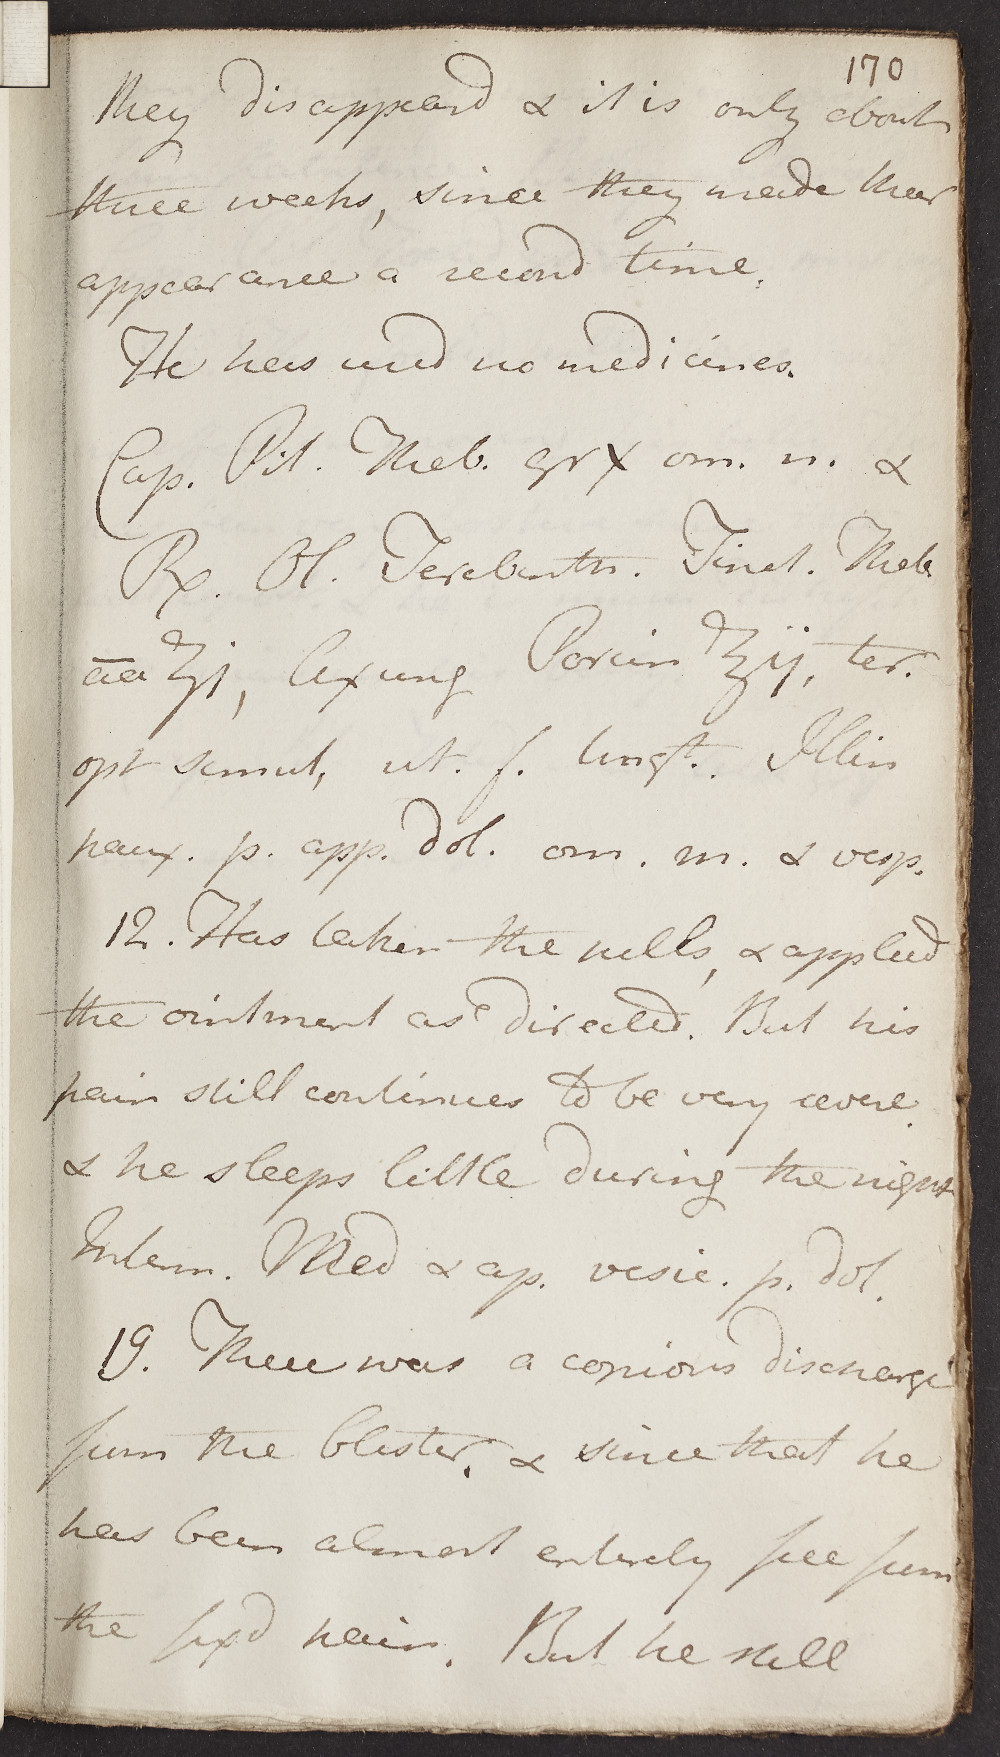 170
they disappeard & it is only about
three weeks, since they made their
appearance a second time.
He has used no medicines.
Cap. Pil. Theb. gr x om. n. &
Rx. Ol. Terebinth. Tinct. Theb.
āa ʒj, Axung Porcin ʒij, ter.
opt simul, ut. f. Ungt. Illin
paux. p. app. dol. om. m. & vesp.
12. Has taken the pills, & applied
the ointment as directed. But his
pain still continues to be very severe.
& he sleeps little during the night
Interm. Med & ap. vesic. p. dol.
19. There was a copious discharge
from the blister, & since that he
has been almost entirely free from
the fix'd pain. But he still